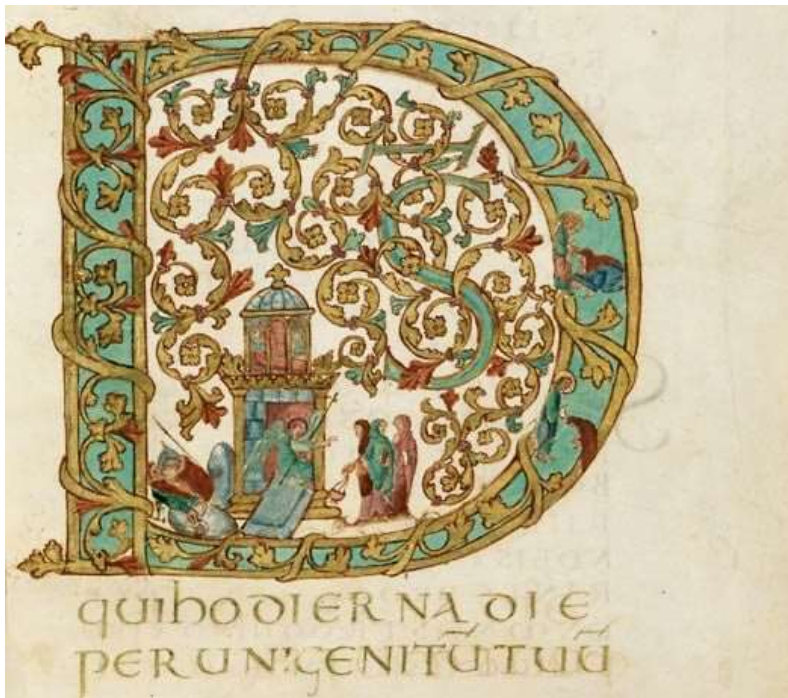 DS
quihodierna die
PER UNIGENITŪ TUŪ